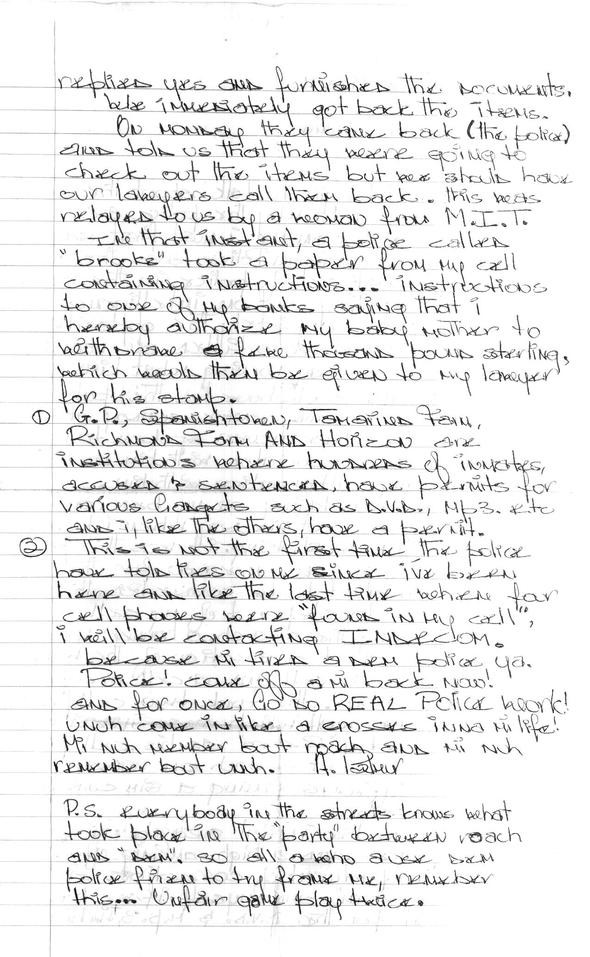 replied yes and furnished the documents.
We immediately got back the items.
On Monday they came back (the police)
and told us that they were going to
check out the items but we should have
our lawyers call them back. this was
relayed to us by a woman from M.I.T.
In that instant, a police called
"brooks" took a paper from my cell
containing instructions... instructions
to one of my banks saying that i
hereby authorize my baby mother to
withdraw a few thousand pound sterling,
which would then be given to my lawyer
for his stamp.
① G.P., Spanishtown, Tamarind Farm,
Richmond Farm AND Horizon are
institutions where hundreds of inmates,
accused & sentenced, have permits for
various Gadgets such as D.V.D., Mp3. etc
and i, like the others, have a permit.
② This is not the first time the police
have told lies on me since i've been
here and like the last time when four
cell phones were "found in my cell",
i will be contacting INDECOM.
because mi tired a dem police ya.
Police! come off a mi back now!
and for once, Go DO REAL Police work!
unuh come in like a crosses inna mi life!
Mi nuh member bout roach and mi nuh
remember bout unuh.
P.S. everybody in the streets knows what
took place in the "party" between roach
and "dem". so all a who a use dem
police frien to try frame me, remember
this... Unfair game play twice.